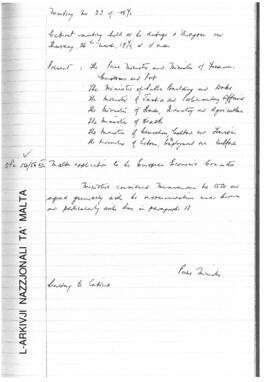 Meeting No 23 of 1970
Cabinet meeting held at the Auberge d'Aragon on
Thursday 26th March 1970 at 11 a.m.
Present : The Prime Minister and Minister of Finance,
Customs and Port
The Minister of Public Building and Works
The Minister of Justice and Parliamentary Affairs
The Minister of Trade, Industry and Agriculture
The Minister of Health
The Minister of Education, Culture and Tourism
The Minister of Labour, Employment and Welfare
Malta application to the European Economic Committee
Ministers considered Memorandum
agreed generally with the recommendations
particularly in paragraph 18
Prime Minister
Secretary to Cabinet
L-ARKIVJI NAZZJONALI TA' MALTA